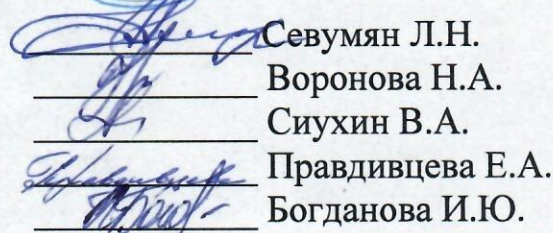 Севумян Л.Н.
Воронова Н.А.
Сиухин В.А.
Правдивцева Е.А.
Богданова И.Ю.